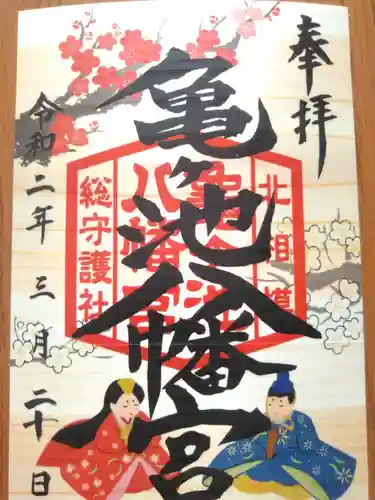 奉拝
亀ヶ池八幡宮
北相模
亀ヶ池
八幡宮
総守護社
令和二年三月二十日